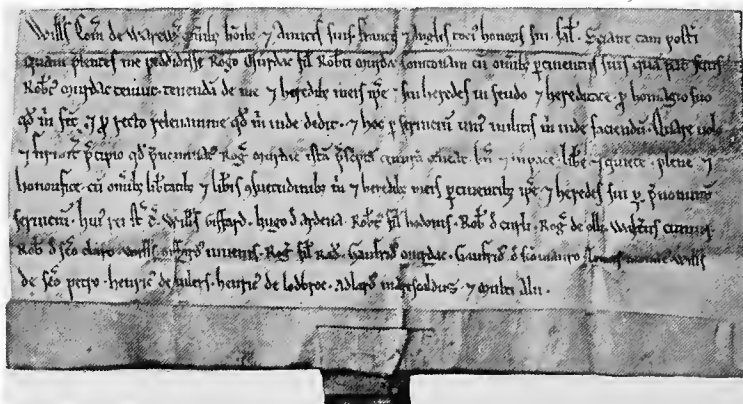 Wills Com de Warewic omibz hoibz ⁊ Amicis suis francis ⁊ Anglis toci honoris sui sal. Sciant tam post'i
quam p'sentes me reddidisse Rogo Murdac fil Rob'ti Murdac cum omibz p'tinentiis suis qua pat' suus
Rob't' Murdac tenuit tenenda de me ⁊ heredibz meis ipse ⁊ sui heredes in feudo ⁊ hereditate p' homagio suo
qd m fec ⁊ p' recto relevamine qd m inde dedit ⁊ hoc p' servicium uni' militis m inde faciendu Quare volo
⁊ firmit' p'cipio qd p'nominat' Rog' Murdac ista teneat bn ⁊ in pace libe ⁊ quiete plene ⁊
honorifice cu omibz libtatibz ⁊ libis ⁊suetudinibz m ⁊ heredibz meis p'tinentibz ipse ⁊ heredes sui p' p'nominatu
serviciu hui' rei st' t' Will's Giffard Hugo d' Ardena Rob't' fil hodonis Rob' d' Curli Rog' de Olli Walt'us
Rob' d' sco claro Will's Giffard' iuvenis Rog' fil Rad' Gaufrid' Murdac Gaufrid' d' Will's
de sco petro henric' de henric' de Lodbroc Adlard' marescaldus ⁊ multi alii